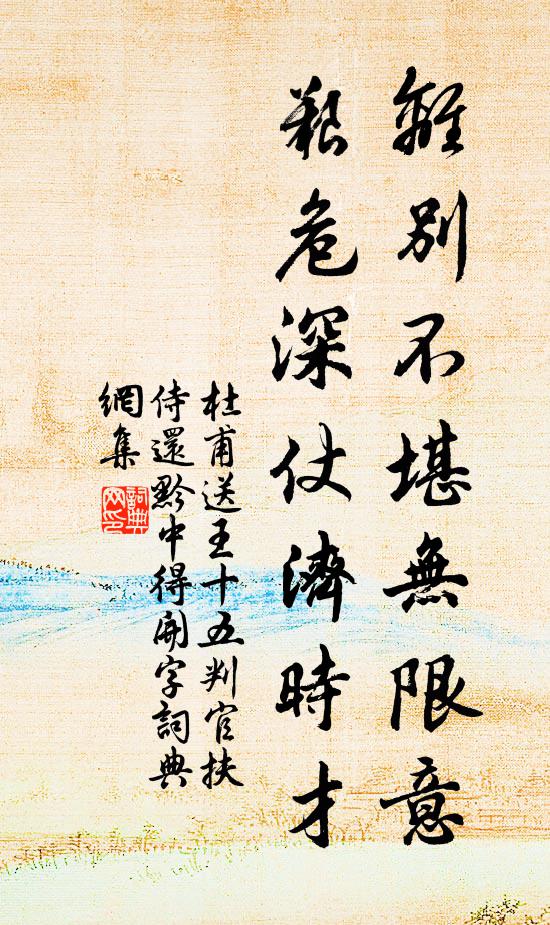 離別不堪無限意
艱危深仗濟時才
杜甫送王十五判官扶
侍還黔中得開字詞典
網集
詞典
网印